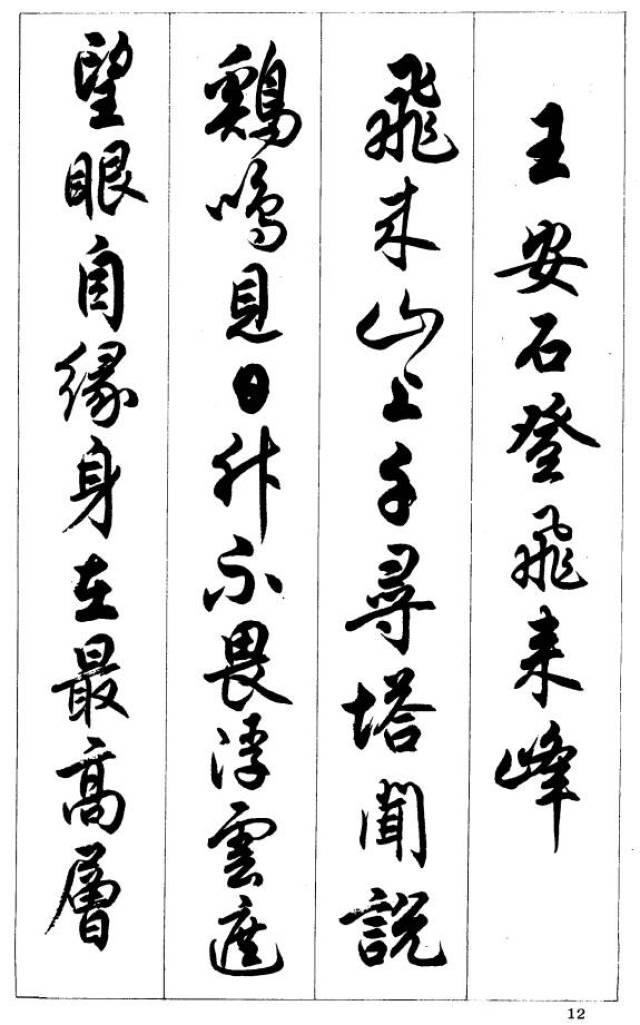 王安石登飛来峰
飛来山上千尋塔聞説
鷄鳴見日升不畏浮雲遮
望眼自緣身在最高層
12